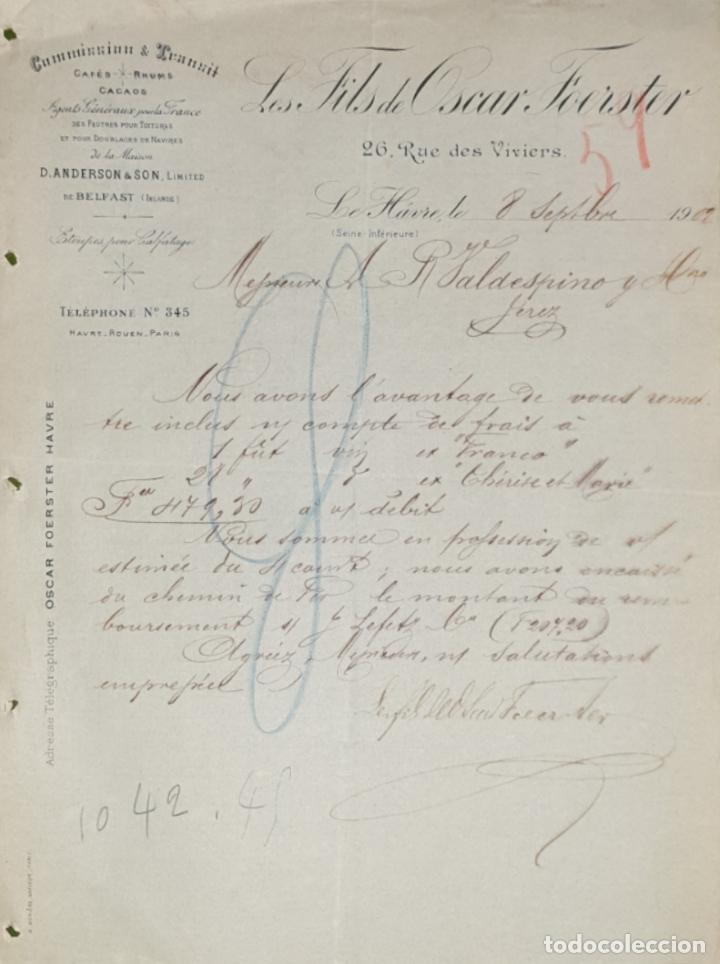 Commission & Transit
CAFÉS RHUMS
CACAOS
Agents Généraux pour la France
DES FEUTRES POUR TOITURES
ET POUR DOUBLAGES DE NAVIRES
de la Maison
D. ANDERSON & SON, LIMITED
DE BELFAST (IRLANDE)
Etoupes pour Calfatage
TÉLÉPHONE Nº 345
HAVRE_ROUEN_PARIS
Les Fils de Oscar Foerster
26, Rue des Viviers.
Le Hâvre, le 8 Septbre 1902
(Seine-Inférieure)
Messieurs A R Valdespino y Hno
Jerez
Nous avons l'avantage de vous remet
tre inclus n/ compte de frais à
1 fût vin ex "Franco"
ex "Thérèse et Marie"
Fcs 479,30 à v/ débit
Nous sommes en possession de v/
estimée du 4 court; nous avons encaissé
du chemin de Fer le montant du rem
boursement s/ J. Lefetz Co (F 207,20)
Agréez, Messieurs, n/ salutations
empressées
Les fils de Oscar Foerster
Adresse Télégraphique OSCAR FOERSTER HAVRE
1042.45
todocoleccion
todocoleccion.net